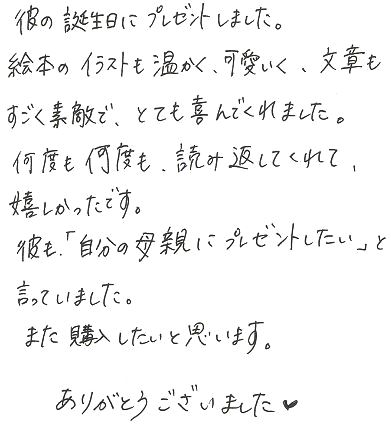 彼の誕生日にプレゼントしました。
絵本のイラストも温かく、可愛いく、文章も
すごく素敵で、とても喜んでくれました。
何度も何度も、読み返してくれて、
嬉しかったです。
彼も、「自分の母親にプレゼントしたい」と
言っていました。
また購入したいと思います。
ありがとうございました♥